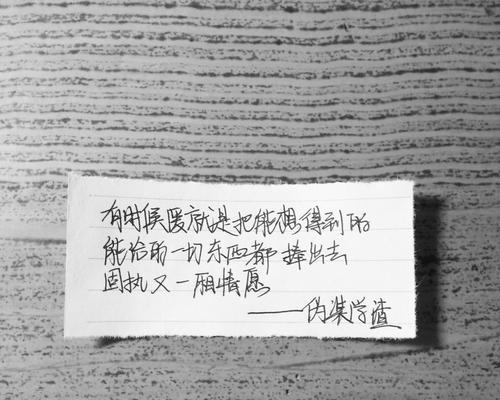 有时候爱就是把能想得到的
能给的一切东西都捧出去
固执又一厢情愿
——伪装学渣